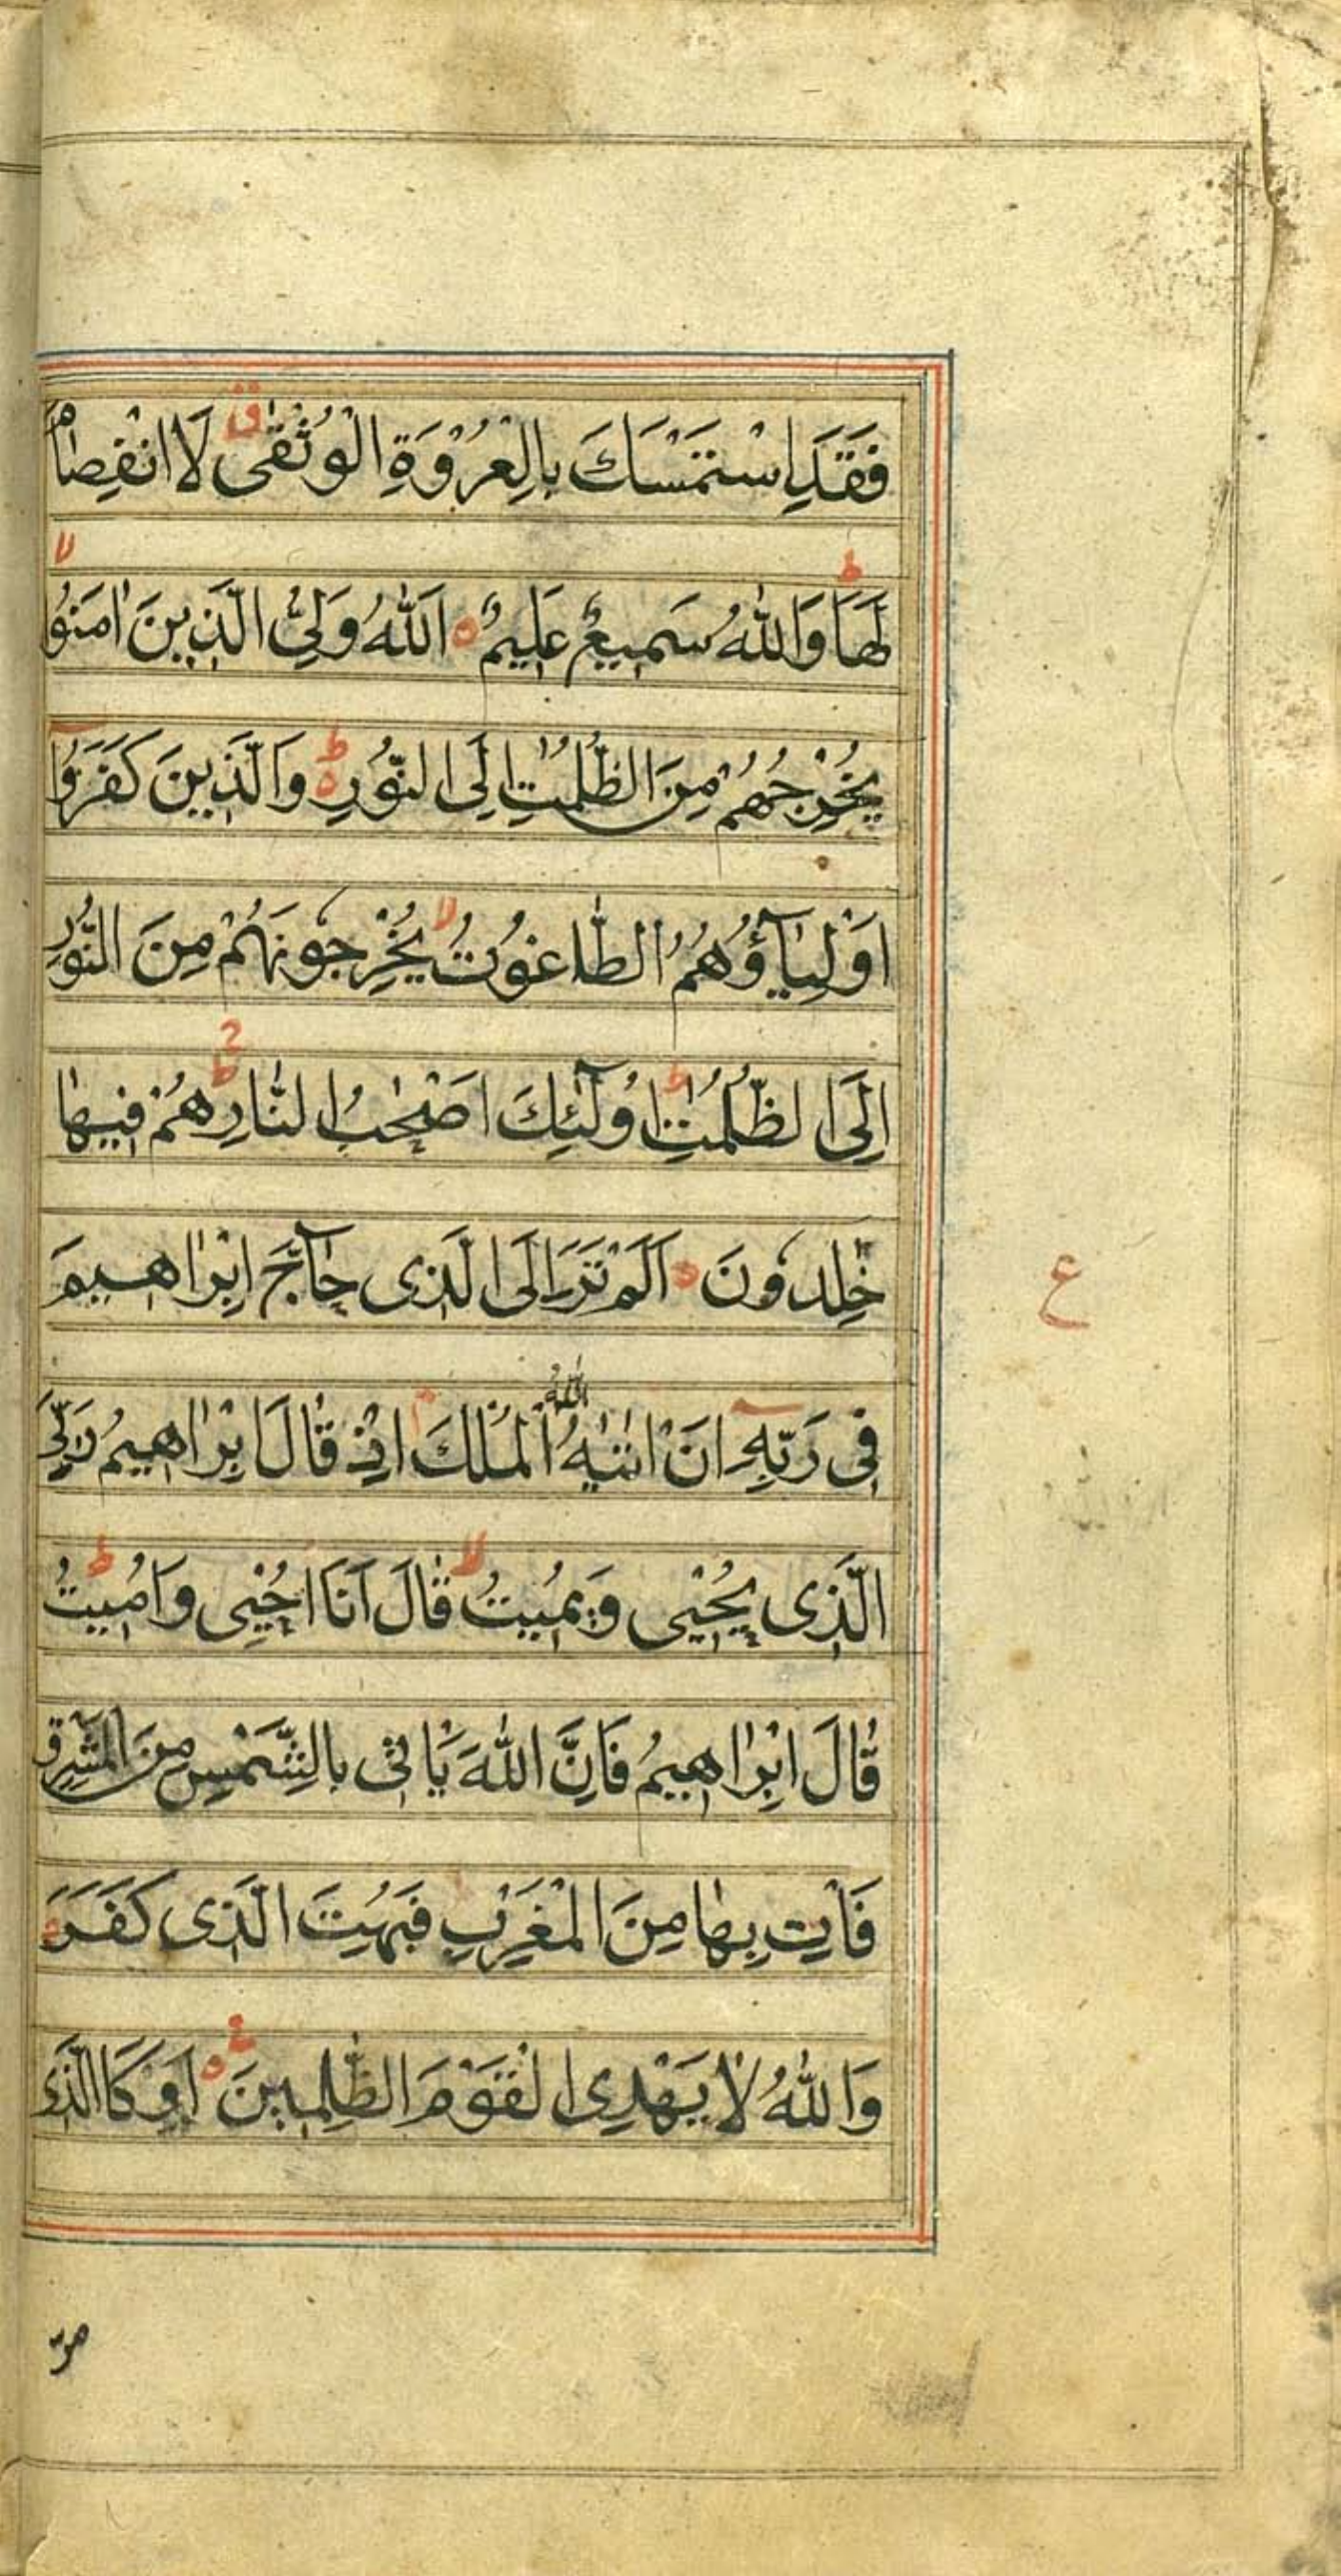 فَقَدِ اسْتَمْسَكَ بِالْعُرْوَةِ الْوُثْقٰى ق لَا انْفِصَامَ
لَهَا ط وَاللّٰهُ سَمِيعٌ عَلِيمٌ ه اَللّٰهُ وَلِيُّ الَّذِينَ اٰمَنُوْا لا
يُخْرِجُهُمْ مِنَ الظُّلُمٰتِ اِلَى النُّوْرِ ط ه وَالَّذِينَ كَفَرُوْا
اَوْلِيَآؤُهُمُ الطَّاغُوْتُ لا يُخْرِجُونَهُمْ مِنَ النُّوْرِ
اِلَى الظُّلُمٰتِ ط اُولٰٓئِكَ اَصْحٰبُ النَّارِ ج هُمْ فِيهَا
خٰلِدُونَ ه اَلَمْ تَرَ اِلَى الَّذِى حَآجَّ اِبْرَاهِيمَ
ع
فِى رَبِّهٖ اَنْ اٰتٰىهُ اللّٰهُ الْمُلْكَ م اِذْ قَالَ اِبْرَاهِيمُ رَبِّىَ
الَّذِى يُحْيٖى وَيُمِيتُ لا قَالَ اَنَا اُحْيٖى وَاُمِيتُ ط
قَالَ اِبْرَاهِيمُ فَاِنَّ اللّٰهَ يَأْتِى بِالشَّمْسِ مِنَ الْمَشْرِقِ
فَأْتِ بِهَا مِنَ الْمَغْرِبِ فَبُهِتَ الَّذِى كَفَرَ ه
وَاللّٰهُ لَا يَهْدِى الْقَوْمَ الظّٰلِمِينَ ه اَوْ كَاالَّذِى
مر